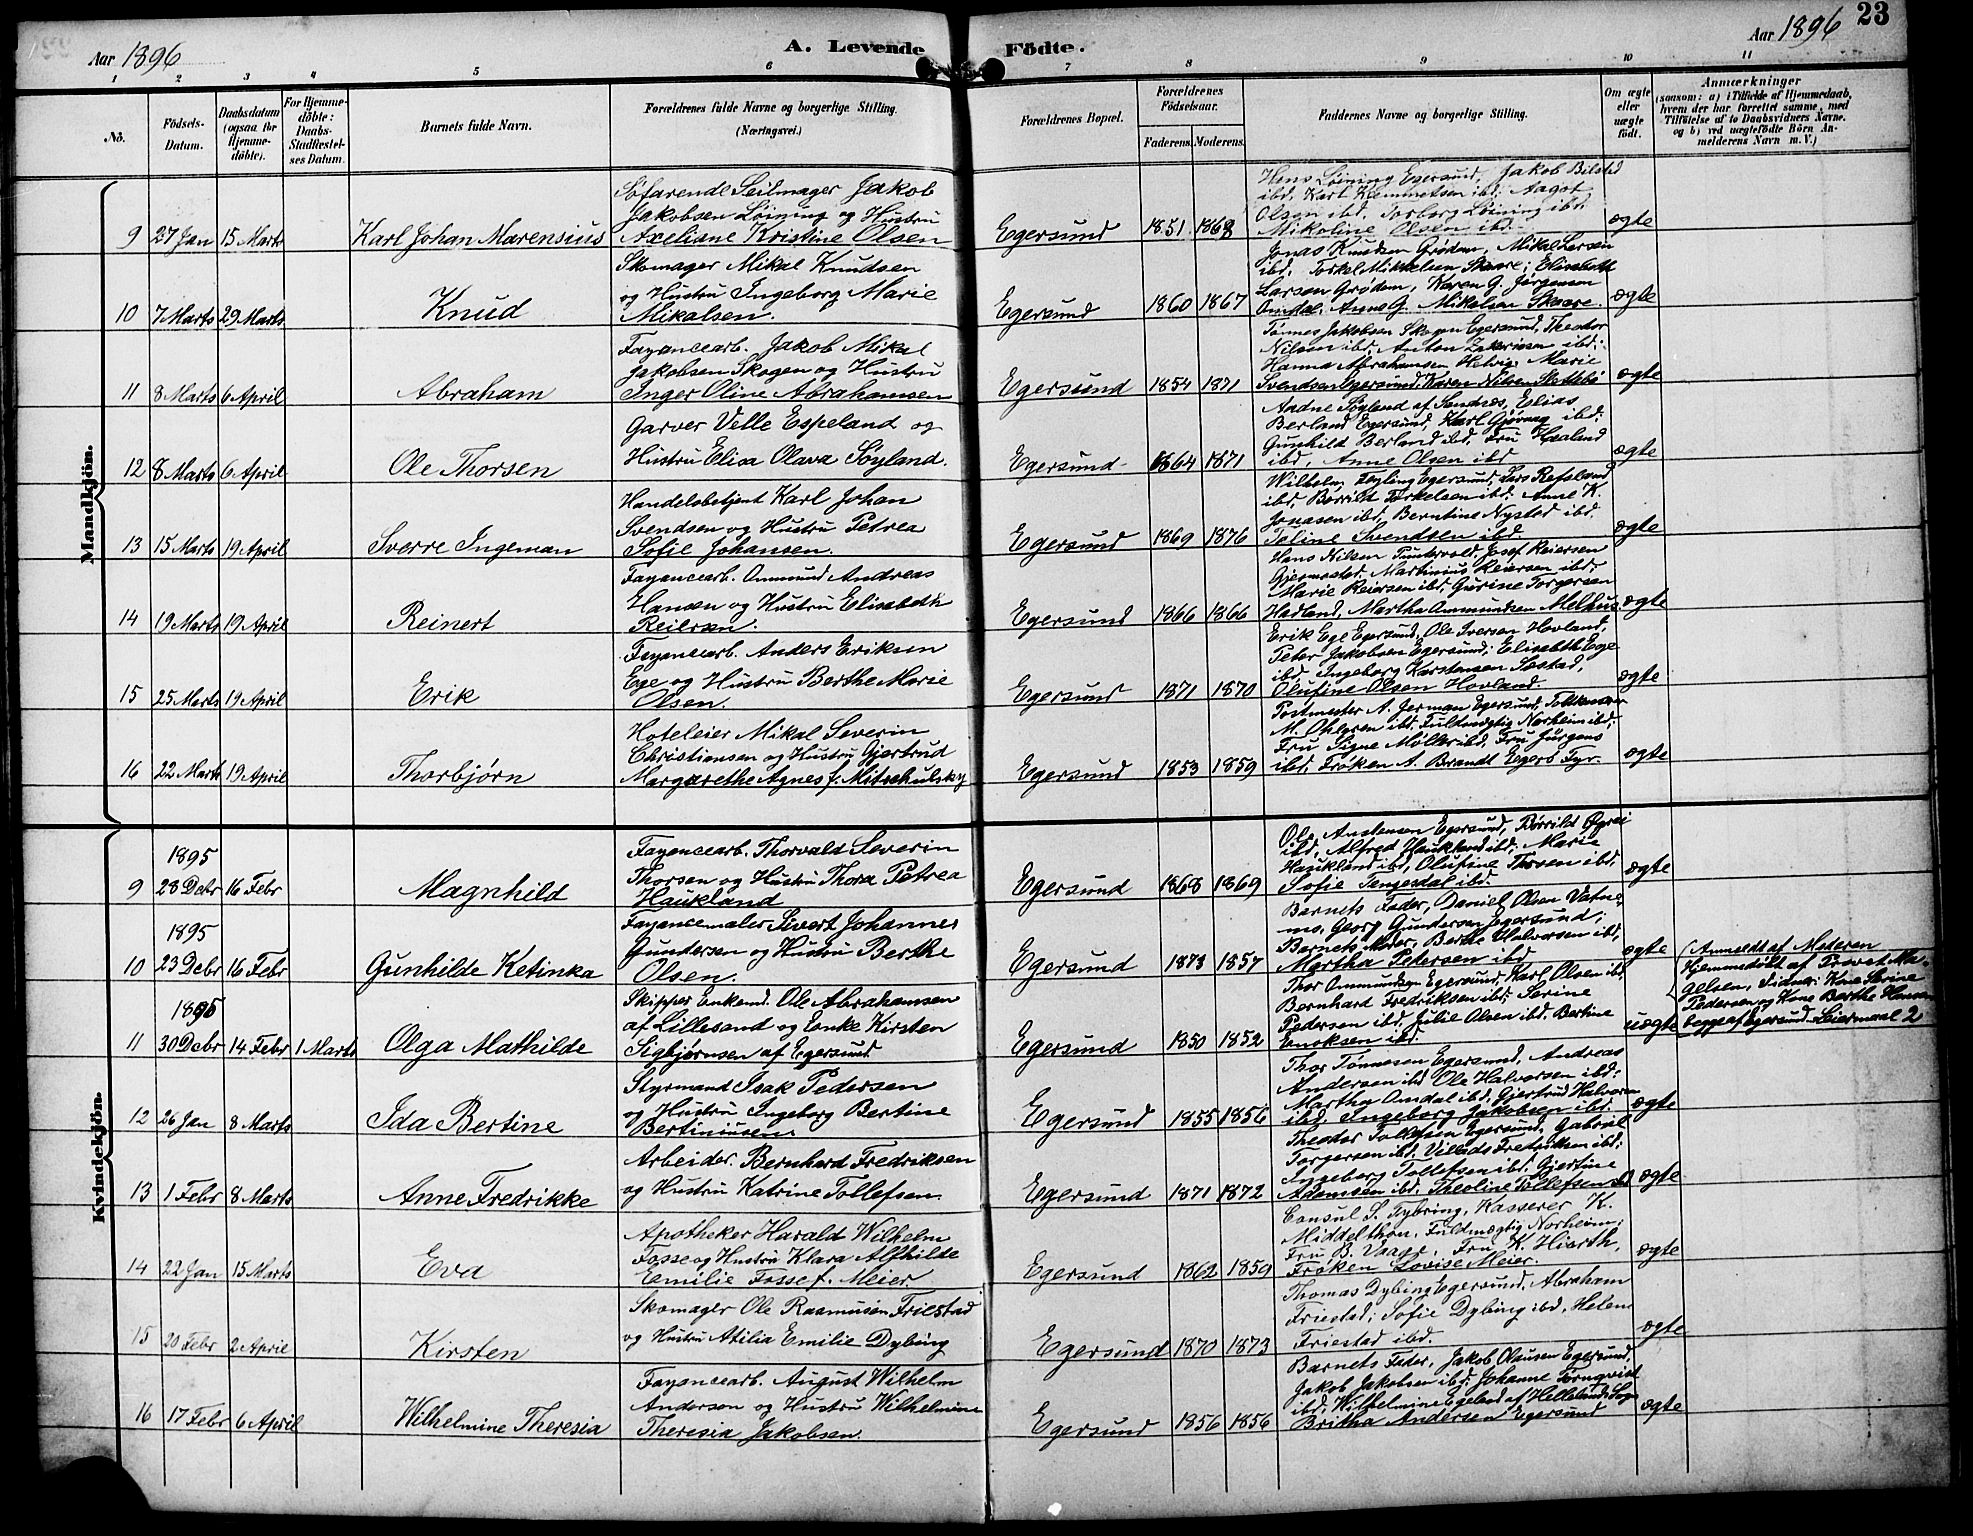 Aar 1896
A. Levende Födte.
Aar 1896
23
1 2 3 4 5 6 7 8 9 10 11
No.
Födsels-
Datum.
Daabsdatum
(ogsaa for
Hjemme-
döbte).
For Hjemme-
döbte:
Daabs-
Stadfæstel-
ses Datum.
Barnets fulde Navn.
Forældrenes fulde Navne og borgerlige Stilling.
(Næringsvei.)
Forældrenes Bopæl.
Forældrenes
Födselsaar.
Faderens. Moderens.
Faddernes Navne og borgerlige Stilling.
Om ægte
eller
uægte
födt.
Anmærkninger
(saasom: a) i Tilfælde af Hjemmedaab,
hvem der har forrettet samme, med
Tilföielse af to Daabsvidners Navne,
og b) ved uægtefödte Börn An-
melderens Navn m. V.)
Mandkjön.
9 27 Jan 15 Marts Karl Johan Marensius
Søfarende Seilmager Jakob
Jakobsen Løining og Hustru
Axeliane Kristine Olsen
Egersund 1851 1868
Hans Løining Egersund, Jakob Bilsted
ibd, Karl Klemmetsen ibd. Aagot
Olsen ibd. Torborg Løining ibd.
Mikoline Olsen ibd.
ægte
10 7 Marts 29 Marts Knud
Skomager Mikal Knudsen
og Hustru Ingeborg Marie
Mikalsen.
Egersund 1860 1867
Jonas Knudsen Grødem, Mikal Larsen
ibd, Torkel Mikkelsen Skaare; Elisabeth
Larsen Grødem, Karen G. Jørgensen
Omdal, Anne G. Mikalsen Skaare.
ægte
11 8 Marts 6 April Abraham
Fayancearb. Jakob Mikal
Jakobsen Skogen og Hustru
Inger Oline Abrahamsen
Egersund 1854 1871
Tønnes Jakobsen Skogen Egersund, Theodor
Nilsen ibd, Anton Zakarisen ibd.
Hanna Abrahamsen, Helvig Marie
Svendsen Egersund, Karen Nilsen Slettebø
ægte
12 8 Marts 6 April Ole Thorsen
Garver Velle Espeland og
Hustru Elisa Olava Søyland.
Egersund 1864 1871
Andne Søyland af Sandnes, Elias
Berland Egersund, Karl Gjøvaag ibd.
Gunhild Berland ibd, Fru Haaland
ibd, Anne Olsen ibd
ægte
13 15 Marts 19 April Sverre Ingeman
Handelsbetjent Karl Johan
Svendsen og Hustru Petrea
Sofie Johansen.
Egersund 1869 1876
Wilhelm Feyling Egersund, Lars Refsland
ibd, Børrild Torkelsen ibd. Anne K.
Jonasen ibd, Berntine Nysted ibd.
Taline Svendsen ibd.
ægte
14 19 Marts 19 April Reinert
Fayancearb. Ommund Andreas
Hansen og Hustru Elisabeth
Reiersen.
Egersund 1866 1866
Hans Nilsen Puntervold, Josef Reiersen
Gjermestad, Martinius Reiersen ibd,
Marie Reiersen ibd, Gurine Torgersen
Hadland, Martha Ommundsen Melhus
ægte
15 25 Marts 19 April Erik
Fayancearb. Anders Eriksen
Ege og Hustru Berthe Marie
Olsen.
Egersund 1871 1870
Erik Ege Egersund, Ole Iversen Hovland,
Peter Jakobsen Egersund; Elisabeth Ege
ibd, Ingeborg Karstensen Sæstad,
Olufine Olsen Hovland.
ægte
16 22 Marts 19 April Thorbjørn
Hoteleier Mikal Severin
Christiansen og Hustru Gjertrud
Margarethe Agnes f. Mitschulsky
Egersund 1853 1859
Postmester A. Jerman Egersund, Toldkasserer
M. Ohlgren ibd, Fuldmægtig Norheim ibd;
Fru Signe Møller ibd, Fru Jürgens
ibd, Frøken A. Brandt Egerø Fyr.
ægte
Kvindekjön.
1895
9 28 Debr 16 Febr Magnhild
Fayancearb. Thorvald Severin
Thorsen og Hustru Thora Petrea
Haukland
Egersund 1868 1869
Ole Anstensen Egersund, Børrild Øgrei
ibd, Alfred Haukland ibd; Marie
Haukland ibd, Olufine Thorsen ibd,
Sofie Tengesdal ibd.
ægte
1895
10 23 Debr 16 Febr Gunhilde Ketinka
Fayancemaler Sivert Johannes
Gundersen og Hustru Berthe
Olsen.
Egersund 1873 1857
Barnets Fader, Daniel Olsen Vatne-
mo, Georg Gundersen Egersund;
Barnets Moder, Berthe Halvorsen ibd,
Martha Pedersen ibd
ægte
1895
11 30 Debr 14 Febr 1 Marts Olga Mathilde
Skipper Enkemd. Ole Abrahamsen
af Lillesand og Enke Kirsten
Sigbjørnsen af Egersund
Egersund 1850 1852
Thor Ommundsen Egersund, Karl Olsen ibd,
Bernhard Fredriksen ibd; Serine
Pedersen ibd, Julie Olsen ibd, Bertine
Enoksen ibd.
uægte
(Anmeldt af Moderen
Hjemmedøbt af Provst Ma-
gelsen, Vidner: Kone Serine
Pedersen og Kone Berthe Hansen
begge af Egersund. Leiermaal 2
12 26 Jan 8 Marts Ida Bertine
Styrmand Isak Pedersen
og Hustru Ingeborg Bertine
Bertiniusen.
Egersund 1855 1856
Thor Tønnesen Egersund, Andreas
Andersen ibd, Ole Halvorsen ibd;
Martha Omdal ibd, Gjertrud Halvorsen
ibd, Ingeborg Jakobsen ibd.
ægte
13 1 Febr 8 Marts Anne Fredrikke
Arbeider. Bernhard Fredriksen
og Hustru Katrine Tollefsen.
Egersund 1871 1872
Theodor Tollefsen Egersund, Gabriel
Torgersen ibd, Villads Fredriksen ibd;
Ingeborg Tollefsen ibd, Gjertine
Adamsen ibd, Theoline Tollefsen ibd
ægte
14 22 Jan 15 Marts Eva
Apotheker Harald Wilhelm
Fosse og Hustru Klara Alfhilde
Emilie Fosse f. Meier
Egersund 1862 1859
Consul S. Tybring, Kasserer K.
Middelthon, Fuldmægtig Norheim;
Fru B. Vaaer, Fru K. Hiorth,
Frøken Lovise Meier.
ægte
15 20 Febr 2 April Kirsten
Skomager Ole Rasmusen Friestad
og Hustru Atilia Emilie Dybing
Egersund 1870 1873
Thomas Dybing Egersund, Abraham
Friestad; Sofie Dybing ibd, Helene
Friestad ibd.
ægte
16 17 Febr 6 April Wilhelmine Theresia
Fayancearb. August Wilhelm
Anderson og Hustru Wilhelmine
Theresia Jakobsen.
Egersund 1856 1856
Barnets Fader, Jakob Olausen Egersund,
Jakob Jakobsen ibd; Johanne Tornqvist
ibd, Wilhelmine Egeland af Helleland Sogn
Britha Andersen Egersund
ægte